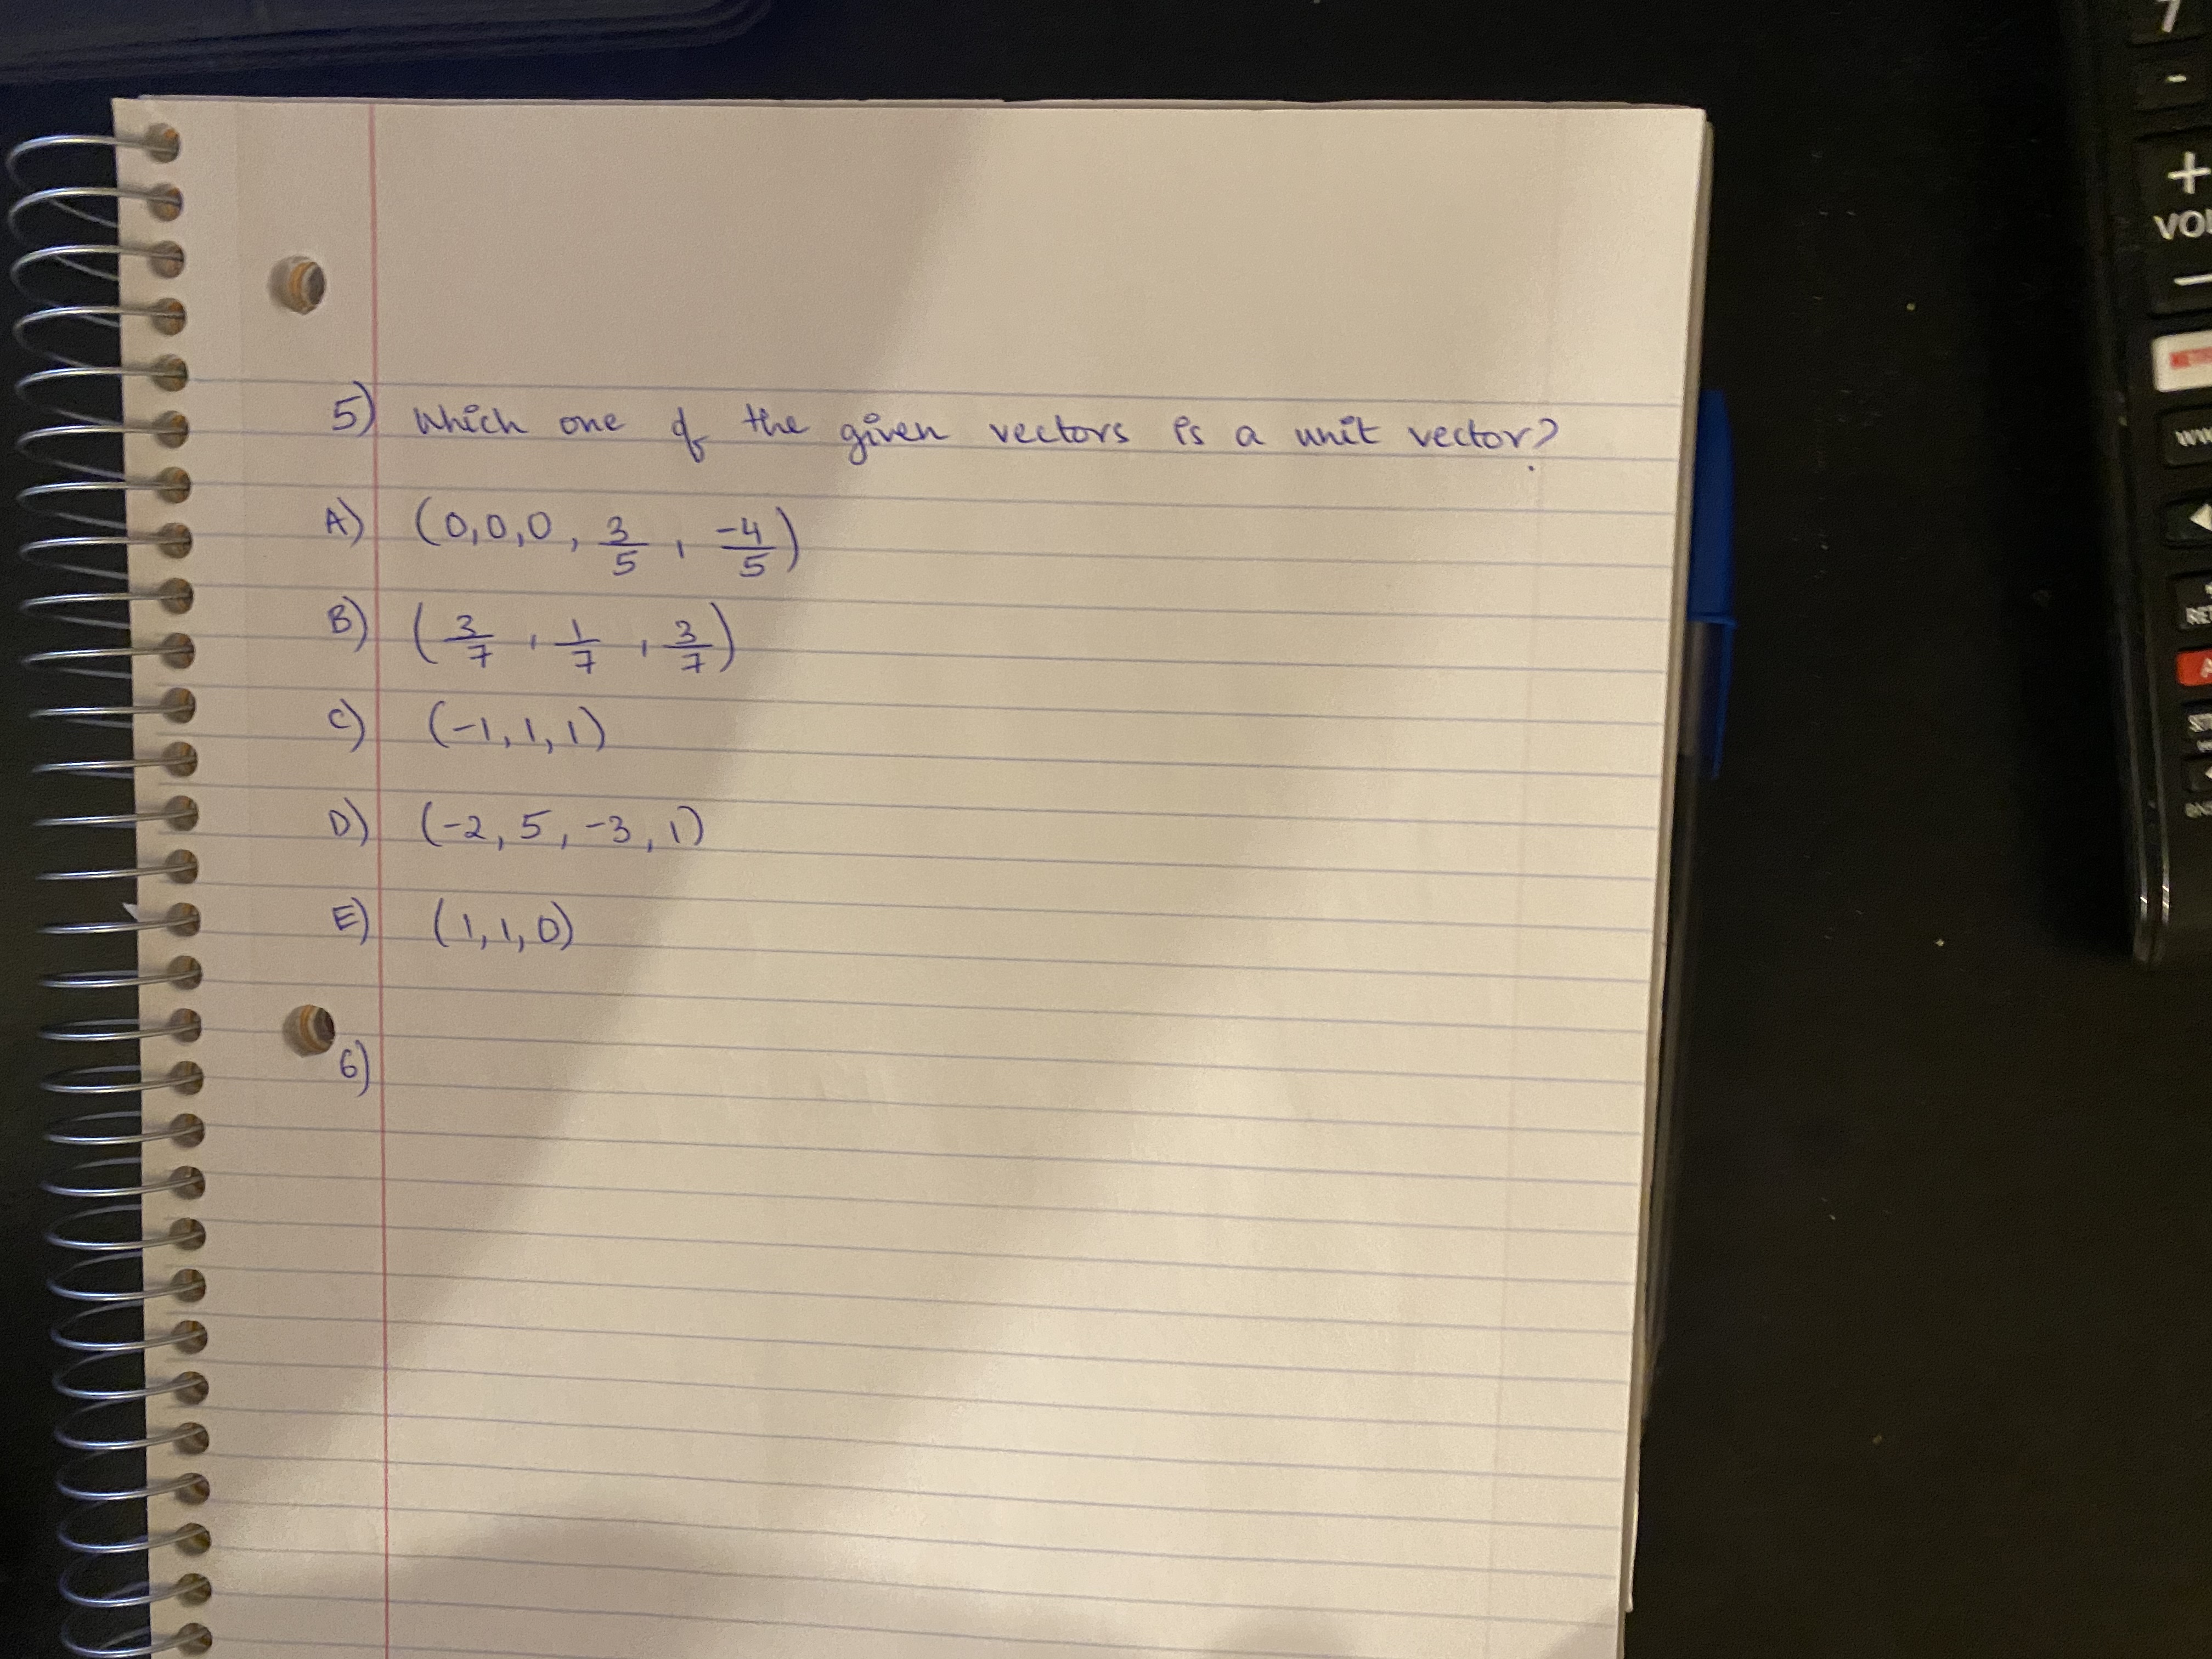 5) Which one of the given vectors is a unit vector?
A) (0,0,0, 3/5, -4/5)
B) (3/7, 1/7, 3/7)
C) (-1, 1, 1)
D) (-2, 5, -3, 1)
E) (1, 1, 0)
6)
7
-
+
VOL
—